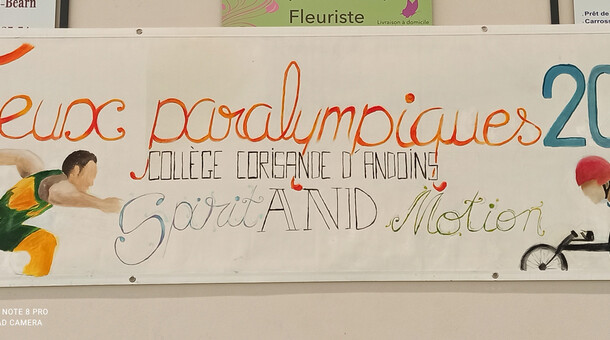 -Béarn
Fleuriste
Livraison à domicile
Prêt de
Carross
eux paralympiques 20
COLLÈGE CORISANDE D'ANDOINS
Spirit AND Motion
NOTE 8 PRO
AD CAMERA